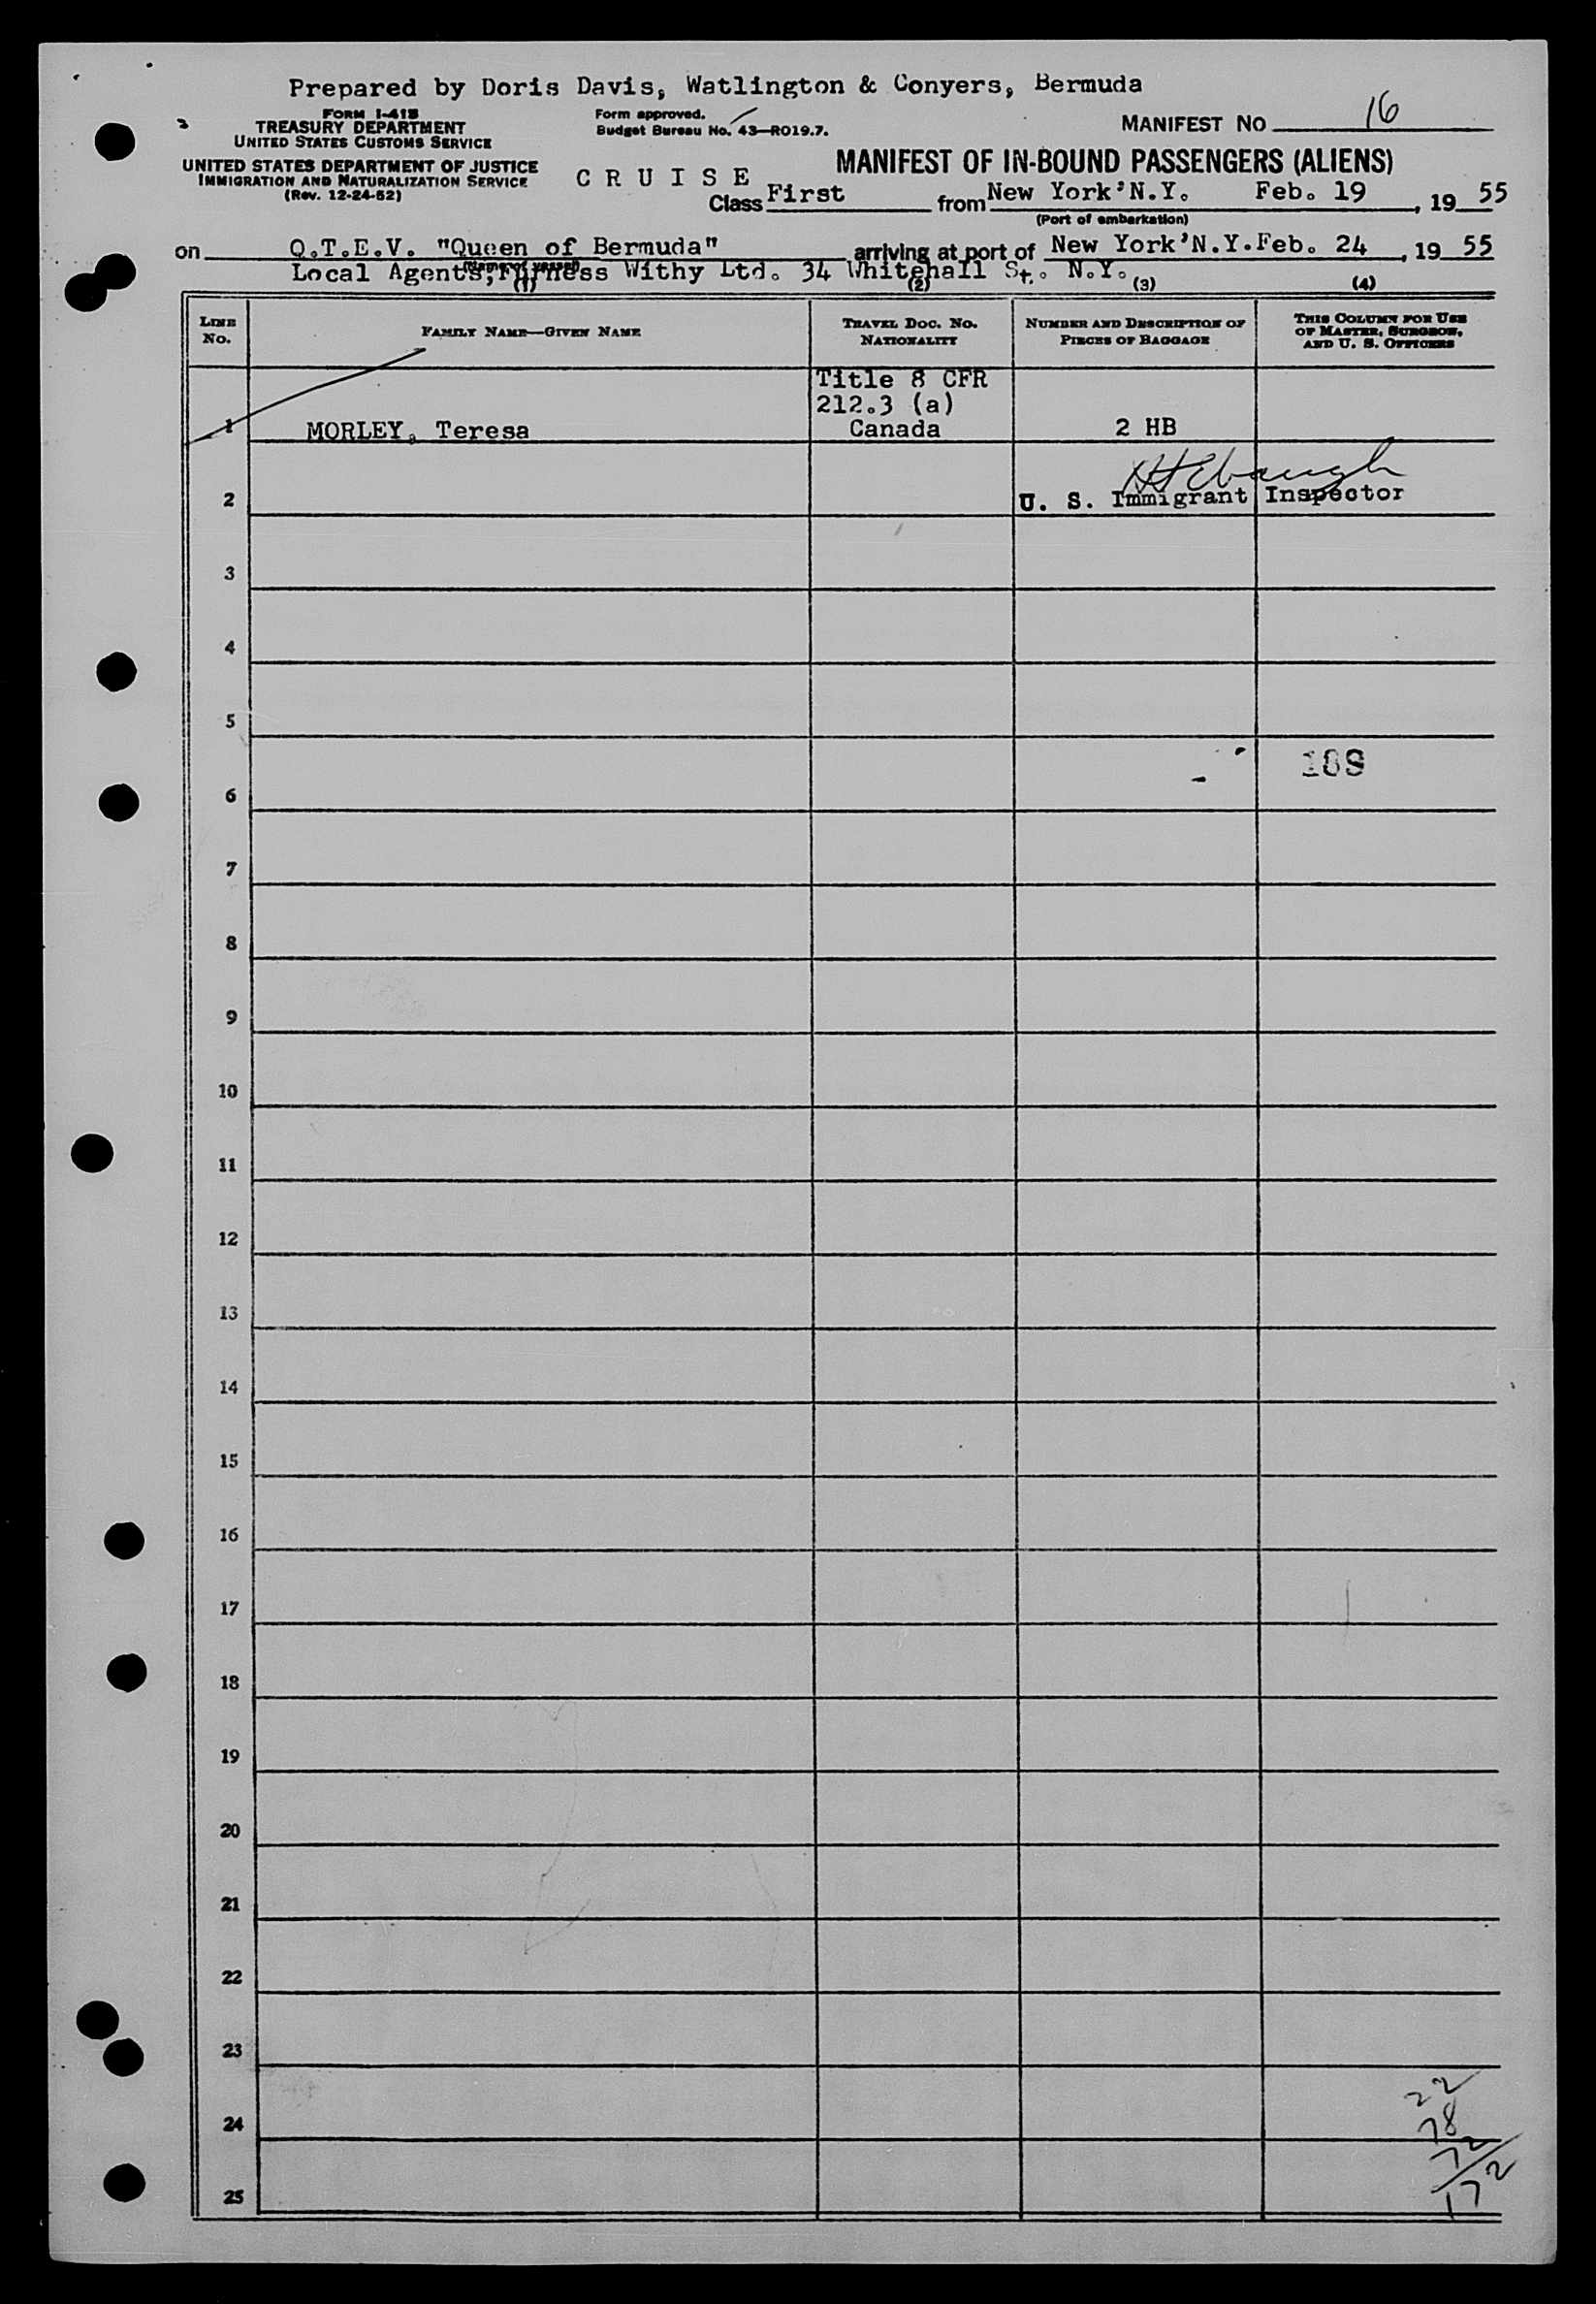 Prepared by Doris Davis, Watlington & Conyers, Bermuda
FORM I-418
TREASURY DEPARTMENT
UNITED STATES CUSTOMS SERVICE
UNITED STATES DEPARTMENT OF JUSTICE
IMMIGRATION AND NATURALIZATION SERVICE
(Rev. 12-24-52)
Form approved.
Budget Bureau No. 43—RO19.7.
MANIFEST NO 16
MANIFEST OF IN-BOUND PASSENGERS (ALIENS)
C R U I S E
Class First from New York'N.Y. Feb. 19, 19 55
(Port of embarkation)
on Q.T.E.V. "Queen of Bermuda" arriving at port of New York'N.Y.Feb. 24, 19 55
Local Agents, Furness Withy Ltd. 34 Whitehall St. N.Y.
(1) (2) (3) (4)
LINE NO.
FAMILY NAME—GIVEN NAME
TRAVEL DOC. NO.
NATIONALITY
NUMBER AND DESCRIPTION OF
PIECES OF BAGGAGE
THIS COLUMN FOR USE
OF MASTER, SURGEON,
AND U. S. OFFICERS
Title 8 CFR
212.3 (a)
1 MORLEY, Teresa Canada 2 HB
2 U. S. Immigrant Inspector
3
4
5
6
7
8
9
10
11
12
13
14
15
16
17
18
19
20
21
22
23
24
25
22
78
72
172